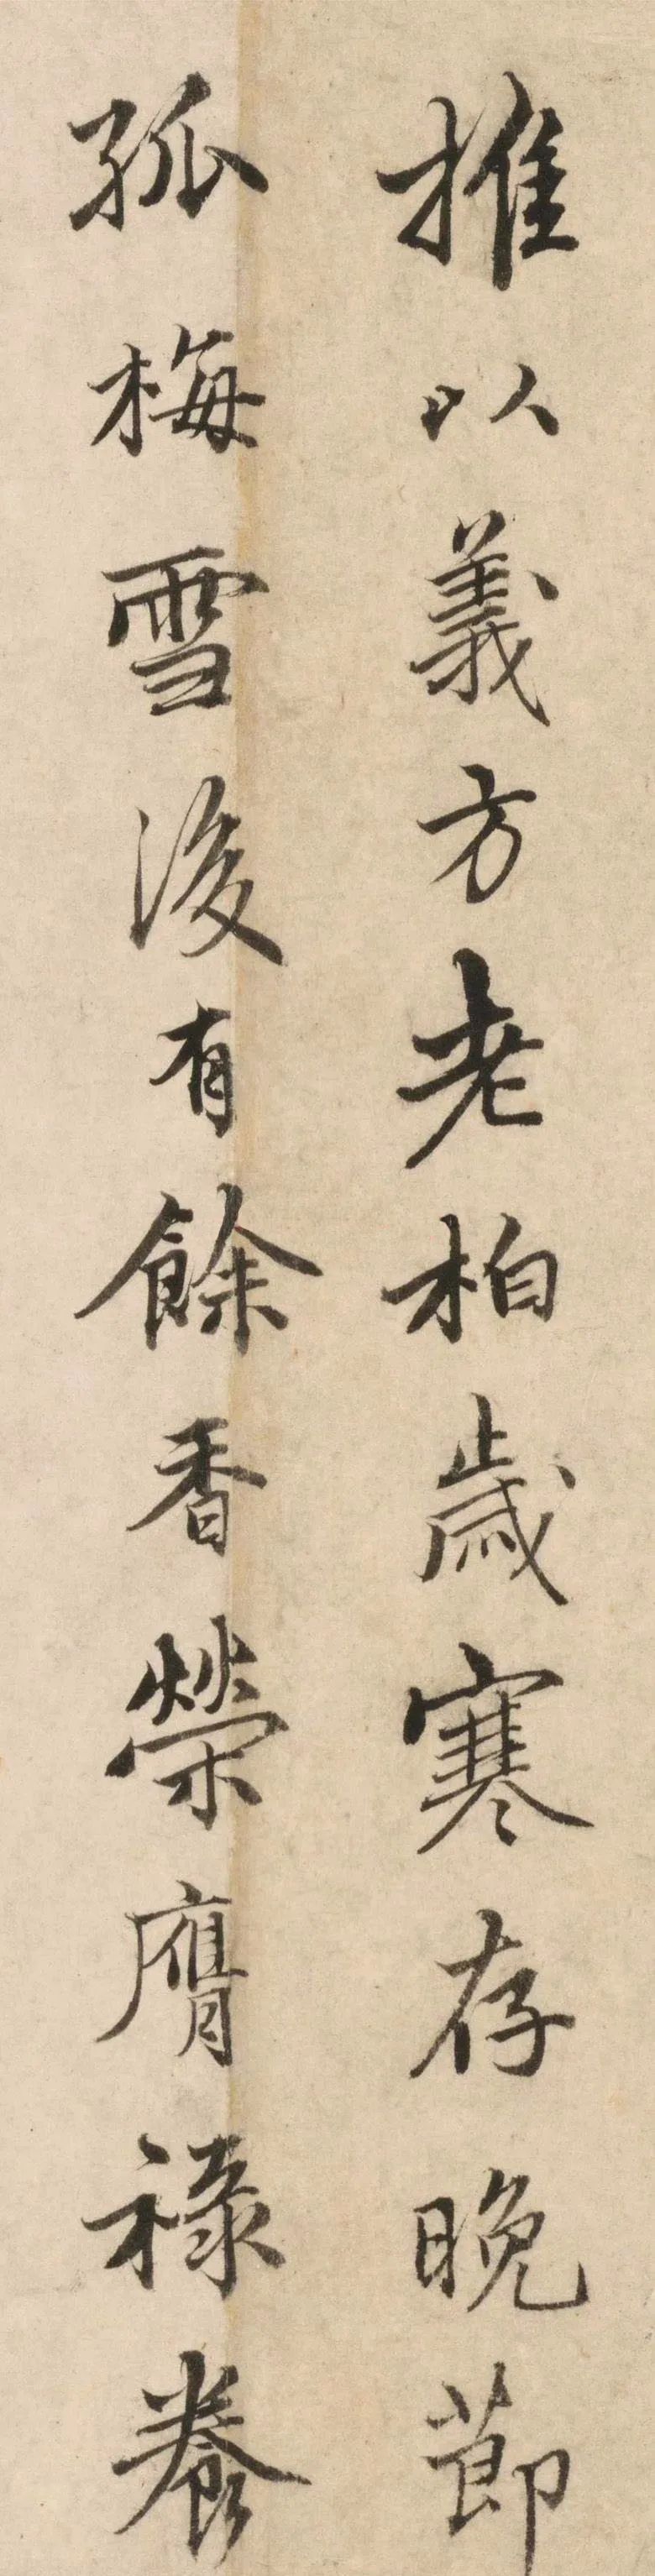 推以義方老柏歲寒存晚節
孤梅雪後有餘香榮膺祿養